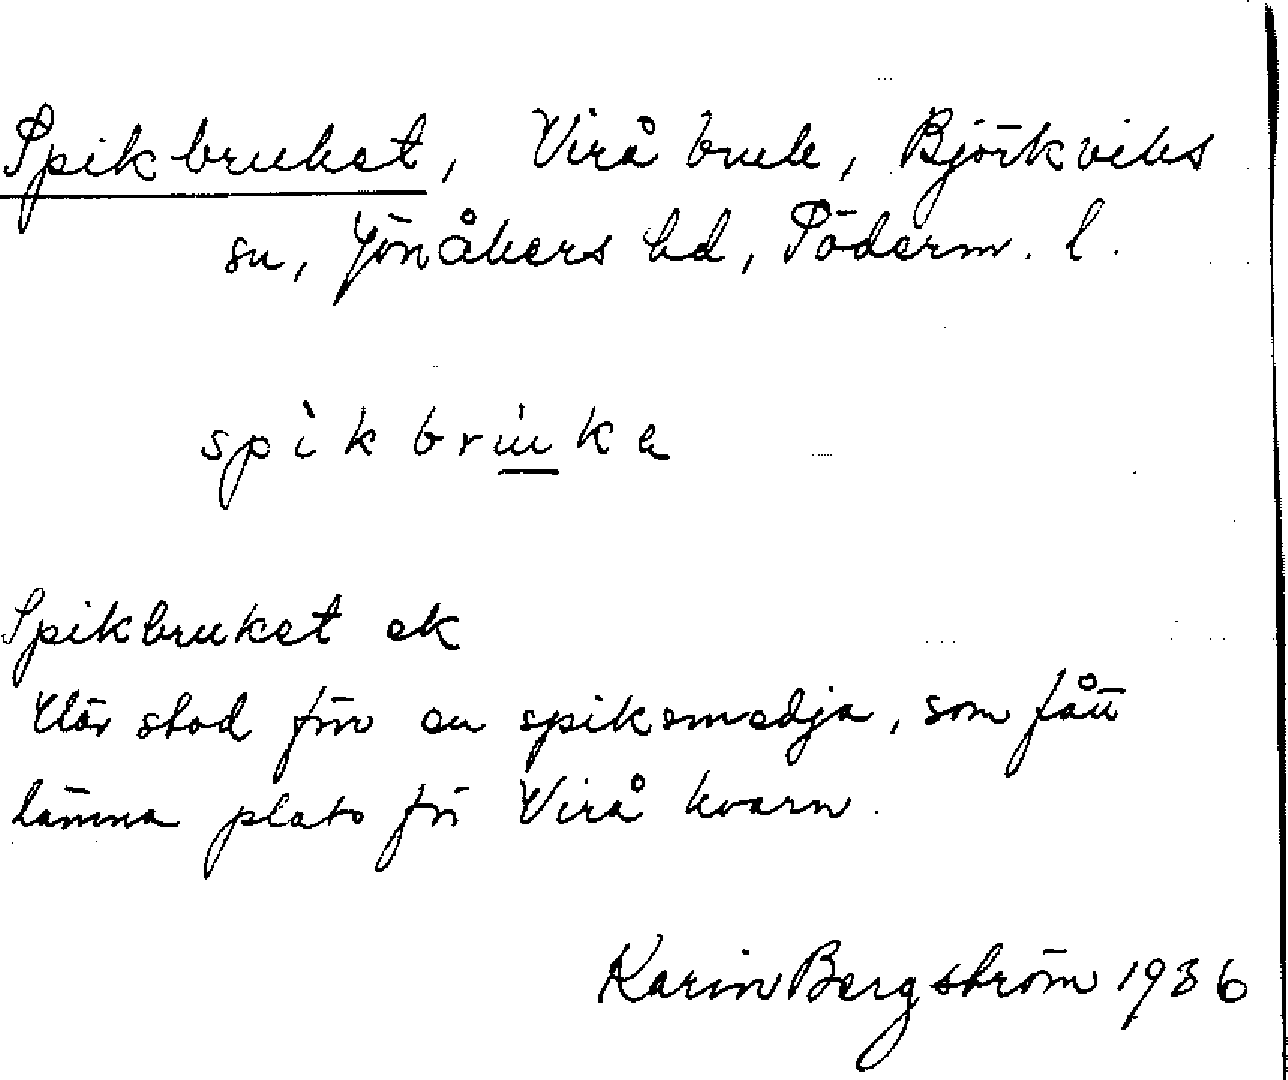 Spikbruket, Virå bruk, Björkviks
sn, Jönåkers hd, Söderm. l.
spìkbrùka
Spikbruket ek
Här stod förr en spiksmedja, som fått
lämna plats för Virå kvarn.
Karin Bergström 1936